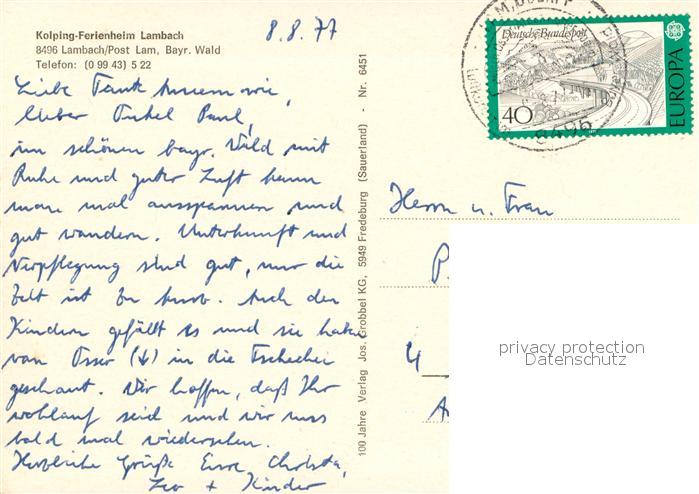 Kolping-Ferienheim Lambach
8496 Lambach/Post Lam, Bayr. Wald
Telefon: (0 99 43) 5 22
8.8.77
Liebe Tante Annemarie,
lieber Onkel Paul,
im schönen bayr. Wald mit
Ruhe und guter Luft kann
man mal ausspannen und
gut wandern. Unterkunft und
Verpflegung sind gut, nur die
Zeit ist zu kurz. Auch den
Kindern gefällt es und sie haben
vom Osser (↓) in die Tschechei
geschaut. Wir hoffen, daß Ihr
wohlauf seid und wir uns
bald mal wiedersehen.
Herzliche Grüße Eure Christa,
Leo + Kinder
100 Jahre Verlag Jos. Grobbel KG, 5949 Fredeburg (Sauerland) - Nr. 6451
Deutsche Bundespost
40
EUROPA
8496
Herrn u. Frau
P.
4
privacy protection
Datenschutz